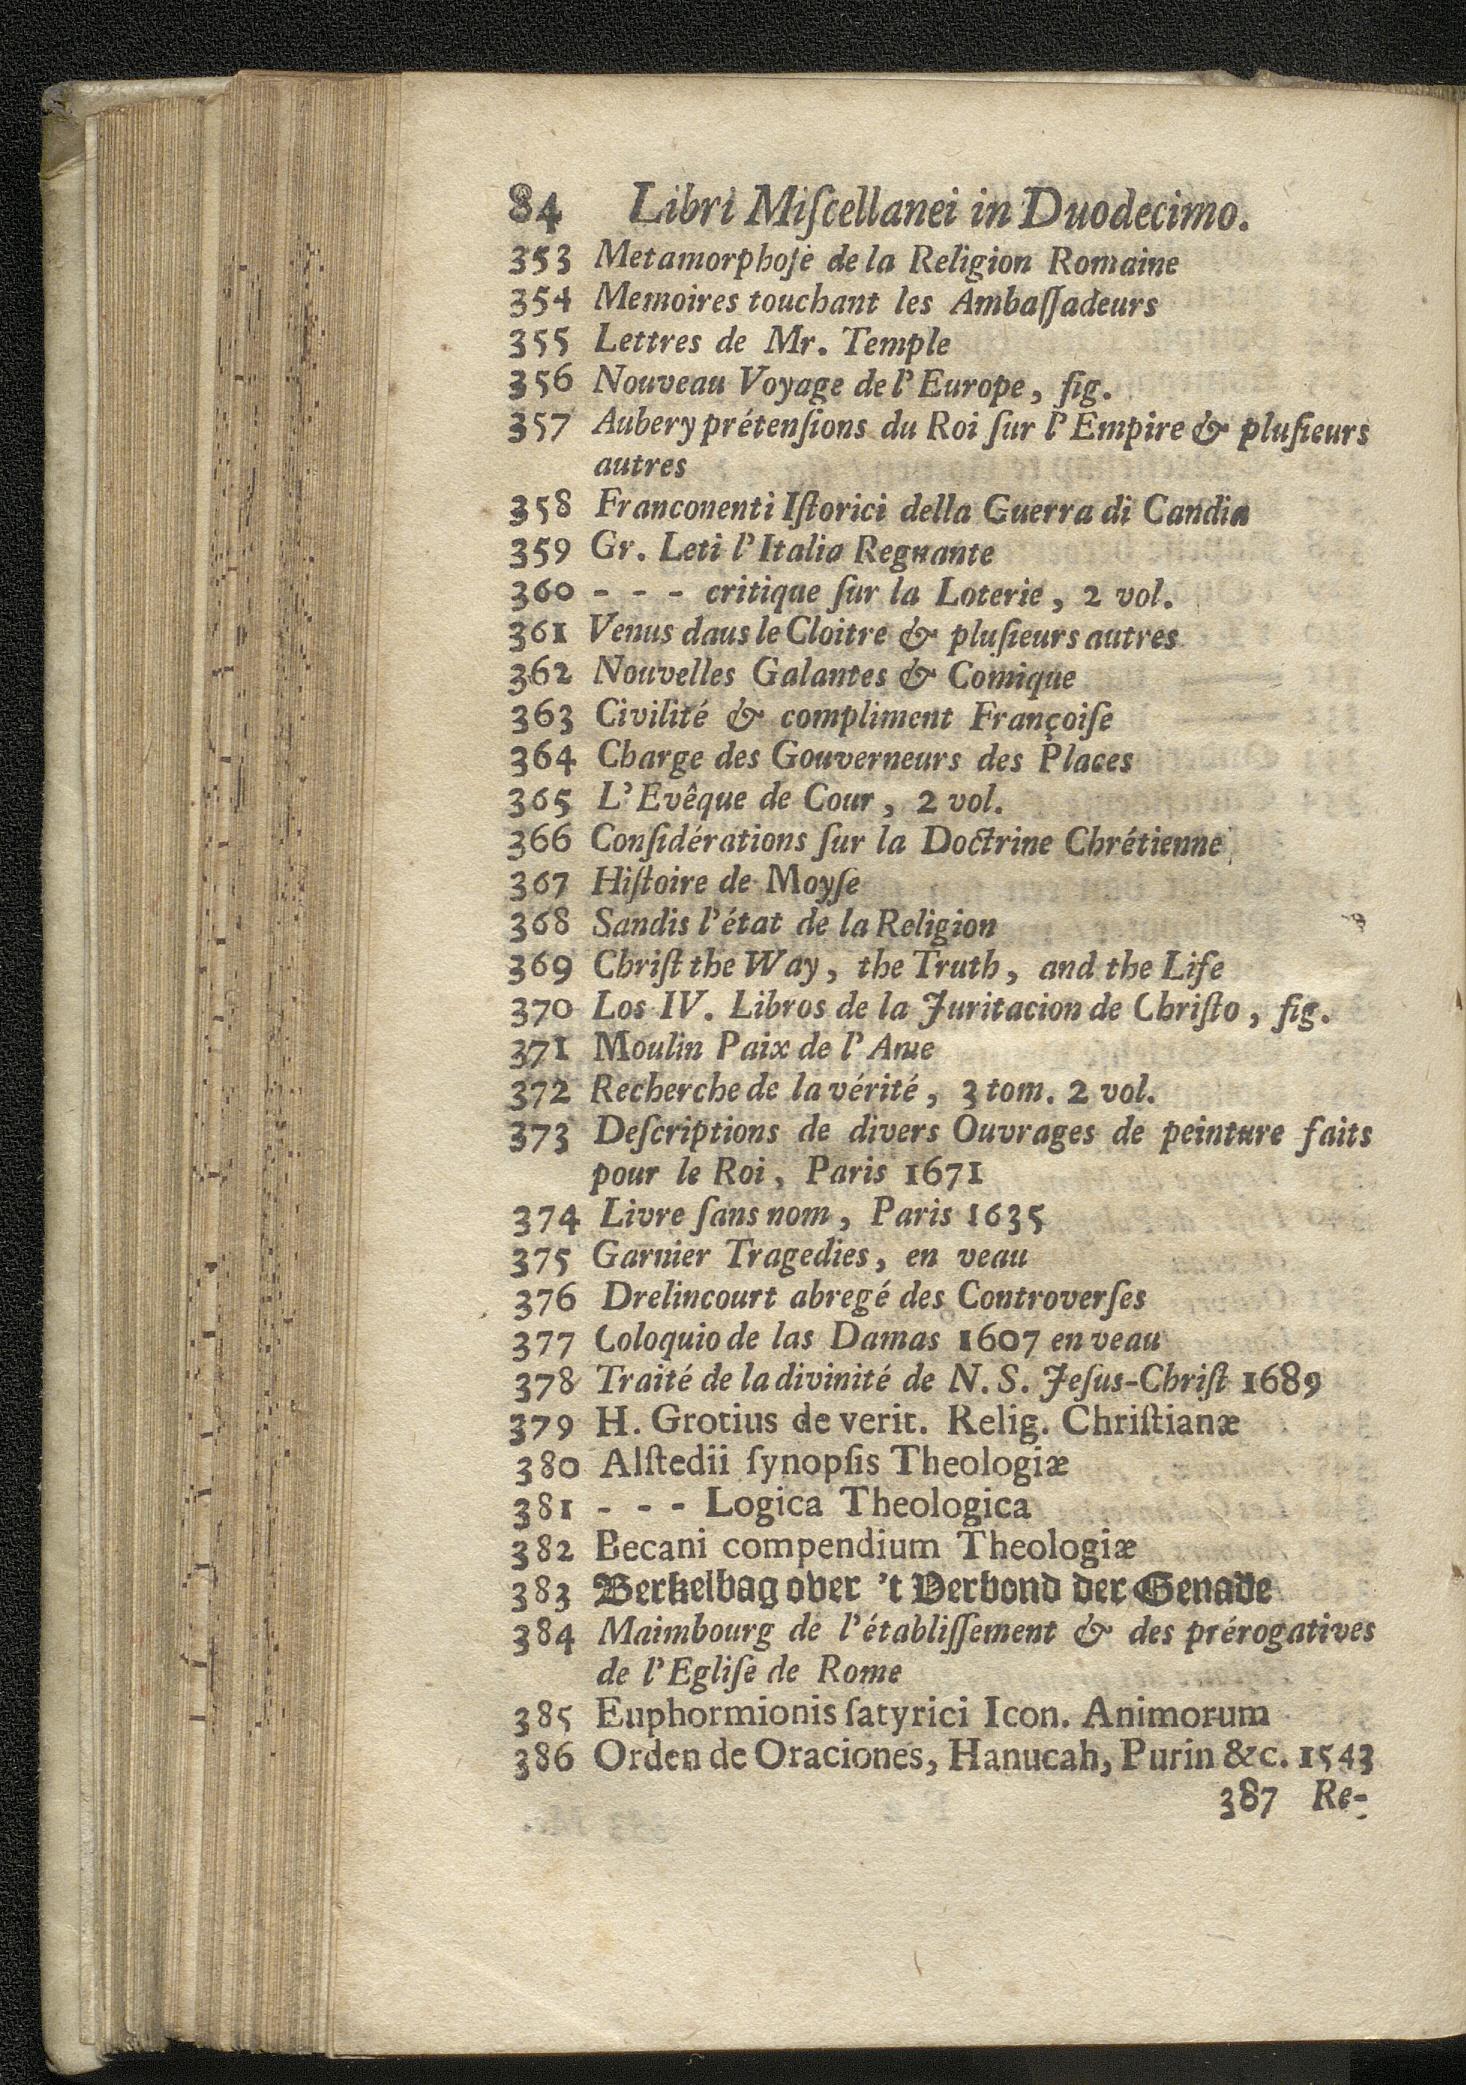 84 Libri Miſcellanei in Duodecimo.
353 Metamorphoſe de la Religion Romaine
354 Memoires touchant les Ambaſſadeurs
355 Lettres de Mr. Temple
356 Nouveau Voyage de l'Europe, fig.
357 Aubery prétenſions du Roi ſur l'Empire & pluſieurs
autres
358 Franconenti Iſtorici della Guerra di Candia
359 Gr. Leti l'Italia Regnante
360 - - - critique ſur la Loterie, 2 vol.
361 Venus daus le Cloitre & pluſieurs autres
362 Nouvelles Galantes & Comique
363 Civilité & compliment Françoiſe
364 Charge des Gouverneurs des Places
365 L'Evêque de Cour, 2 vol.
366 Conſidérations ſur la Doctrine Chrétienne
367 Hiſtoire de Moyſe
368 Sandis l'état de la Religion
369 Chriſt the Way, the Truth, and the Life
370 Los IV. Libros de la Juritacion de Chriſto, fig.
371 Moulin Paix de l'Ame
372 Recherche de la vérité, 3 tom. 2 vol.
373 Deſcriptions de divers Ouvrages de peinture faits
pour le Roi, Paris 1671
374 Livre ſans nom, Paris 1635
375 Garnier Tragedies, en veau
376 Drelincourt abregé des Controverſes
377 Coloquio de las Damas 1607 en veau
378 Traité de la divinité de N. S. Jeſus-Chriſt 1689
379 H. Grotius de verit. Relig. Chriſtianæ
380 Alſtedii ſynopſis Theologiæ
381 - - - Logica Theologica
382 Becani compendium Theologiæ
383 Berkelbag over 't Verbond der Genade
384 Maimbourg de l'établiſſement & des prérogatives
de l'Egliſe de Rome
385 Euphormionis ſatyrici Icon. Animorum
386 Orden de Oraciones, Hanucah, Purin &c. 1543
387 Re-